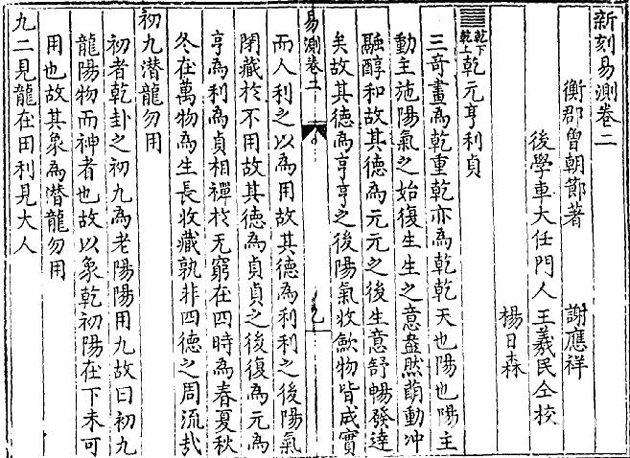 新刻易測卷二
衡郡曾朝節著 謝應祥
後學車大任門人王羲民仝校
楊日森
乾下乾上 乾元亨利貞
三奇畫為乾重乾亦為乾乾天也陽也陽主
動主施陽氣之始復生生之意盎然萌動冲
融醇和故其德為元元之後生意舒暢發達
矣故其德為亨亨之後陽氣收歛物皆成實
易測卷二
而人利之以為用故其德為利利之後陽氣
閉藏於不用故其德為貞貞之後復為元為
亨為利為貞相禪於无窮在四時為春夏秋
冬在萬物為生長收藏孰非四德之周流哉
初九潛龍勿用
初者乾卦之初九為老陽陽用九故曰初九
龍陽物而神者也故以象乾初陽在下未可
用也故其象為潛龍勿用
九二見龍在田利見大人